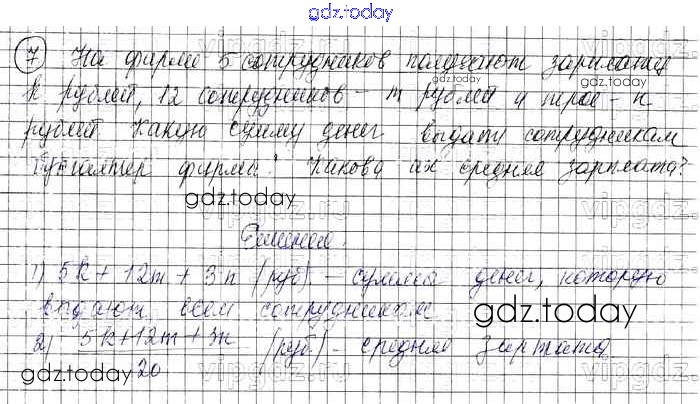 gdz.today
7 На фирме 5 сотрудников получают зарплату
gdz.today
k рублей, 12 сотрудников - m рублей и трое - n
рублей Какую сумму денег выдаст сотрудникам
бухгалтер фирмы? Какова их средняя зарплата?
gdz.today
Решение.
1) 5k + 12m + 3n (руб). - сумма денег, которую
выдают всем сотрудникам
gdz.today
2) 5k+12m+3n (руб.) - средняя зарплата
gdz.today 20